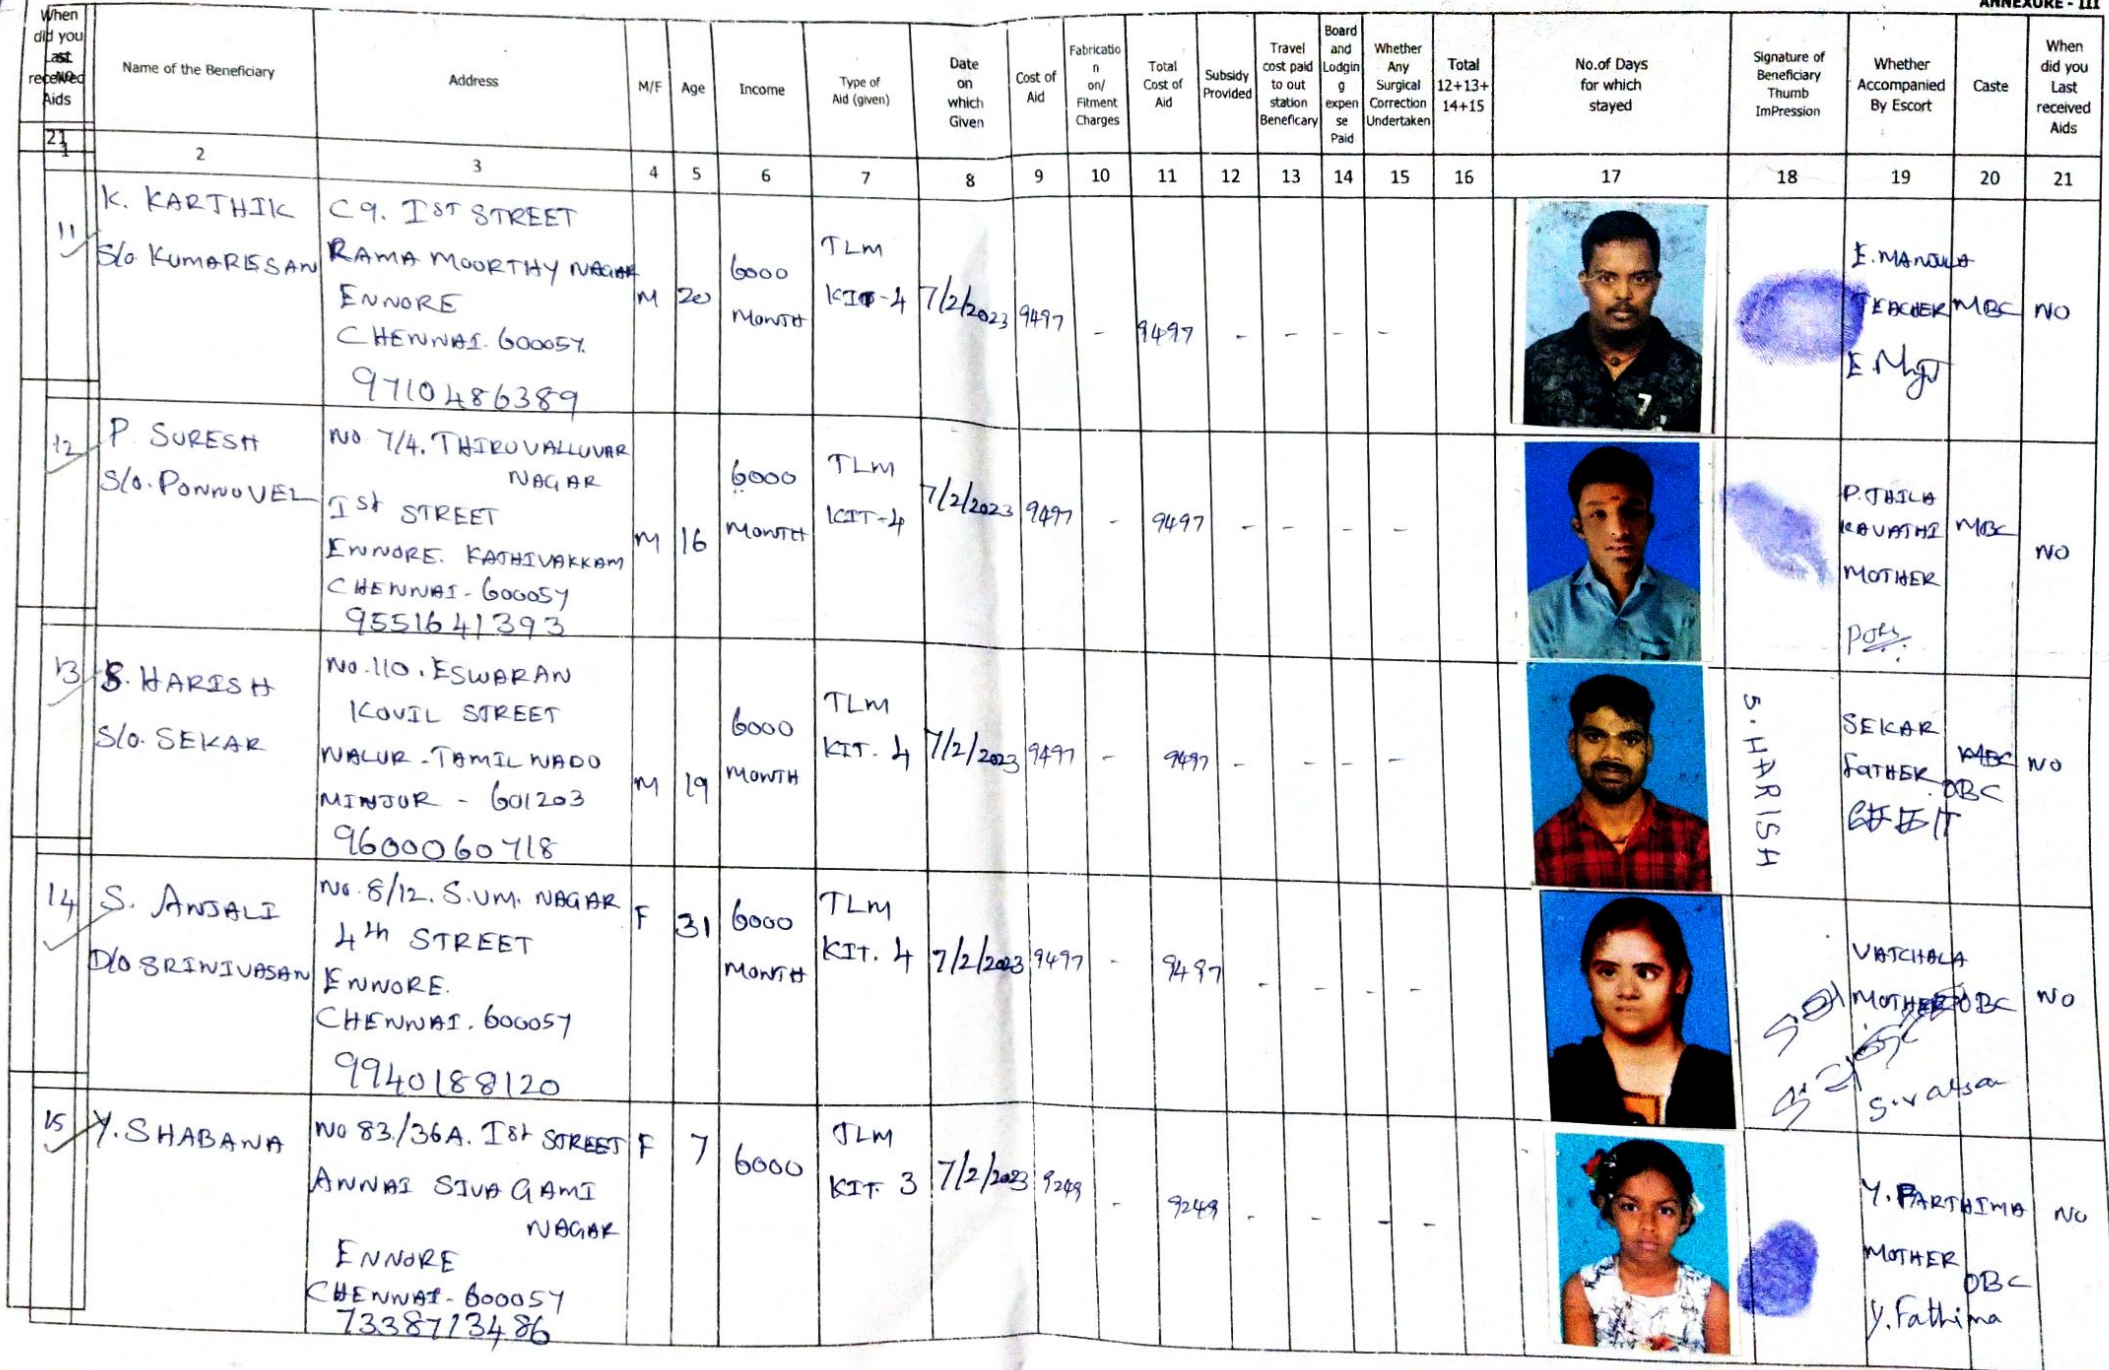 ANNEXURE - III
When
did you
Last
received
Aids
Name of the Beneficiary
Address
M/F
Age
Income
Type of
Aid (given)
Date
on
which
Given
Cost of
Aid
Fabricatio
n
on/
Fitment
Charges
Total
Cost of
Aid
Subsidy
Provided
Travel
cost paid
to out
station
Beneficary
Board
and
Lodgin
g
expen
se
Paid
Whether
Any
Surgical
Correction
Undertaken
Total
12+13+
14+15
No.of Days
for which
stayed
Signature of
Beneficiary
Thumb
ImPression
Whether
Accompanied
By Escort
Caste
When
did you
Last
received
Aids
21
1 2 3 4 5 6 7 8 9 10 11 12 13 14 15 16 17 18 19 20 21
11
K. KARTHIK
S/o KUMARESSAN
C9. IST STREET
RAMA MOORTHY NAGAR
ENNORE
CHENNAI. 600057.
9710486389
M
20
6000
MONTH
TLM
KIT-4
7/2/2023
9497
-
9497
- - - -
E. MANJULA
TEACHER
MBC
NO
12
P. SURESH
S/o. PONNUVEL
NO 7/4. THIRUVALLUVAR
NAGAR
Ist STREET
ENNORE. KATHIVAKKAM
CHENNAI - 600057
9551641393
M
16
6000
MONTH
TLM
KIT-4
7/2/2023
9497
-
9497
- - - -
P. THILA
KAVATHI
MOTHER
MBC
NO
13
S. HARISH
S/o. SEKAR
NO.110. ESWARAN
KOVIL STREET
NALUR - TAMIL NADO
MINJUR - 601203
9600060718
M
19
6000
MONTH
TLM
KIT. 4
7/2/2023
9497
-
9497
- - - -
S. HARISH
SEKAR
FATHER
MBC
OBC
NO
14
S. ANJALI
D/O SRINIVASAN
NO. 8/12. S.V.M. NAGAR
4th STREET
ENNORE.
CHENNAI. 600057
9940188120
F
31
6000
MONTH
TLM
KIT. 4
7/2/2023
9497
-
9497
- - - -
VATCHALA
MOTHER
OBC
NO
15
Y. SHABANA
NO 83/36A. Ist STREET
ANNAI SIVAGAMI
NAGAR
ENNORE
CHENNAI - 600057
7338713486
F
7
6000
TLM
KIT. 3
7/2/2023
9249
-
9249
- - - -
Y. PARTHIMA
MOTHER
OBC
Y. Fathima
NO